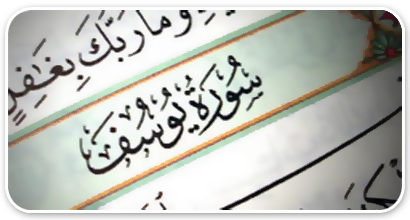 وَمَا رَبُّكَ بِغَٰفِلٍ
سُورَةُ يُوسُفَ